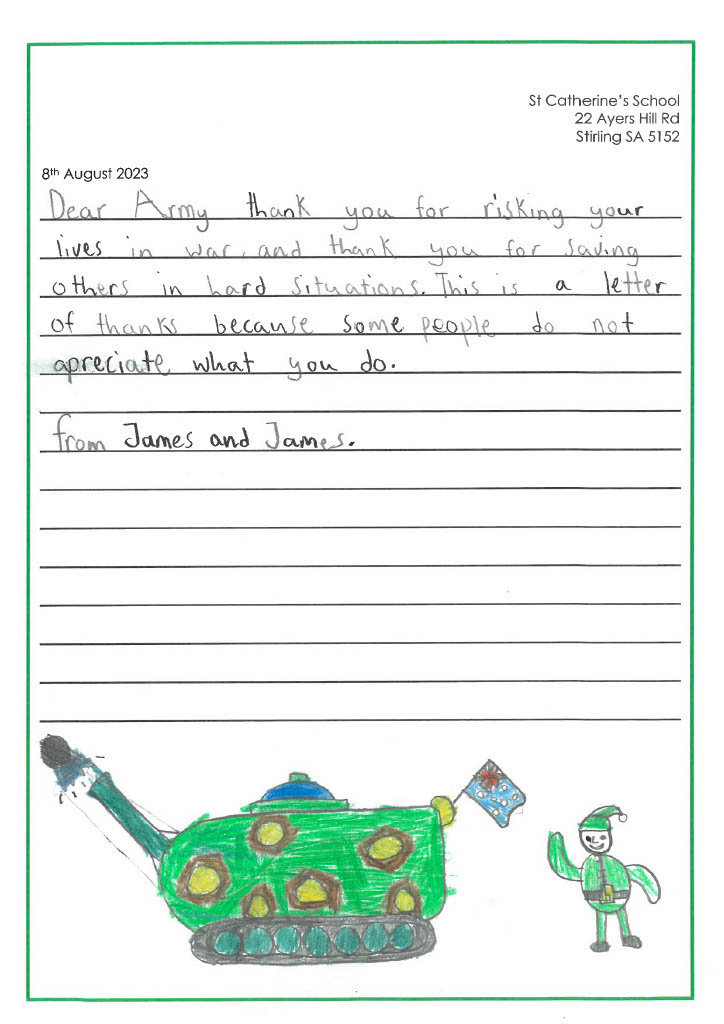 St Catherine's School
22 Ayers Hill Rd
Stirling SA 5152
8th August 2023
Dear Army thank you for risking your
lives in war, and thank you for saving
others in hard situations. This is a letter
of thanks because some people do not
apreciate what you do.
from James and James.